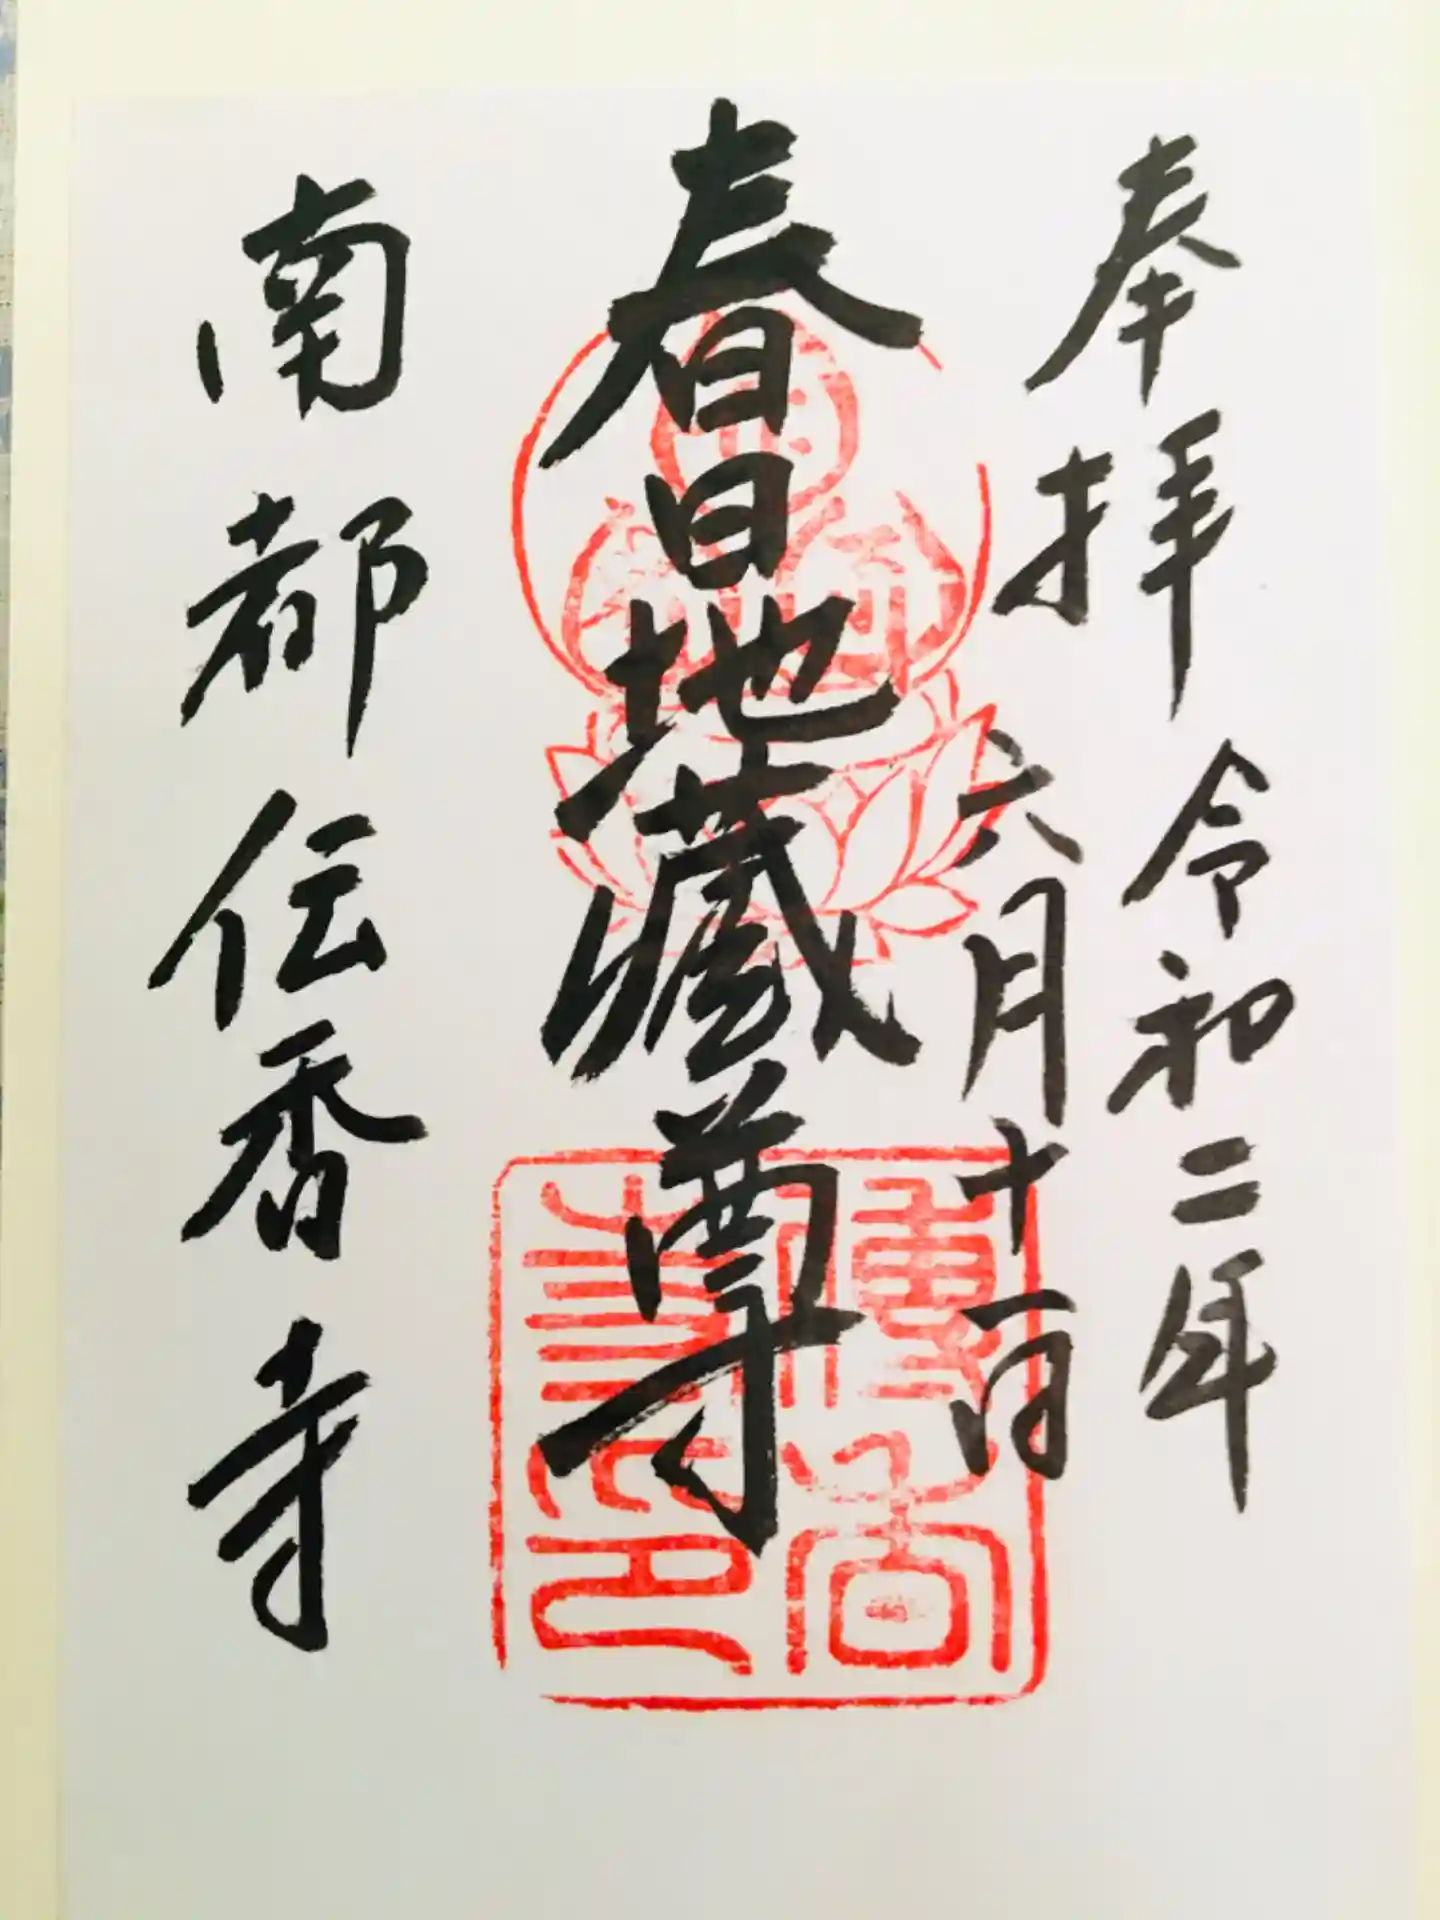 奉拝
令和二年
六月十一日
春日地蔵尊
南都伝香寺
傳香
寺印